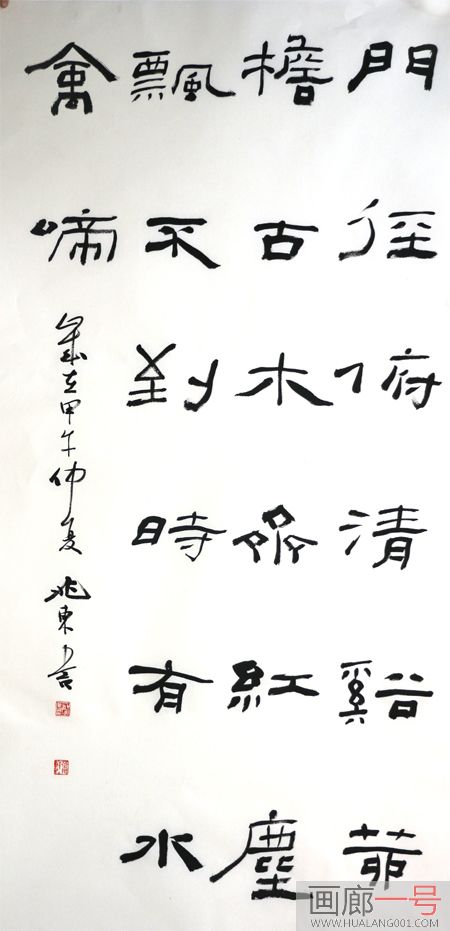 門徑俯清谿茆
檐古木齊紅塵
飄不到時有水
禽啼
歲在甲午仲夏 兆東書
画廊一号
WWW.HUALANG001.COM